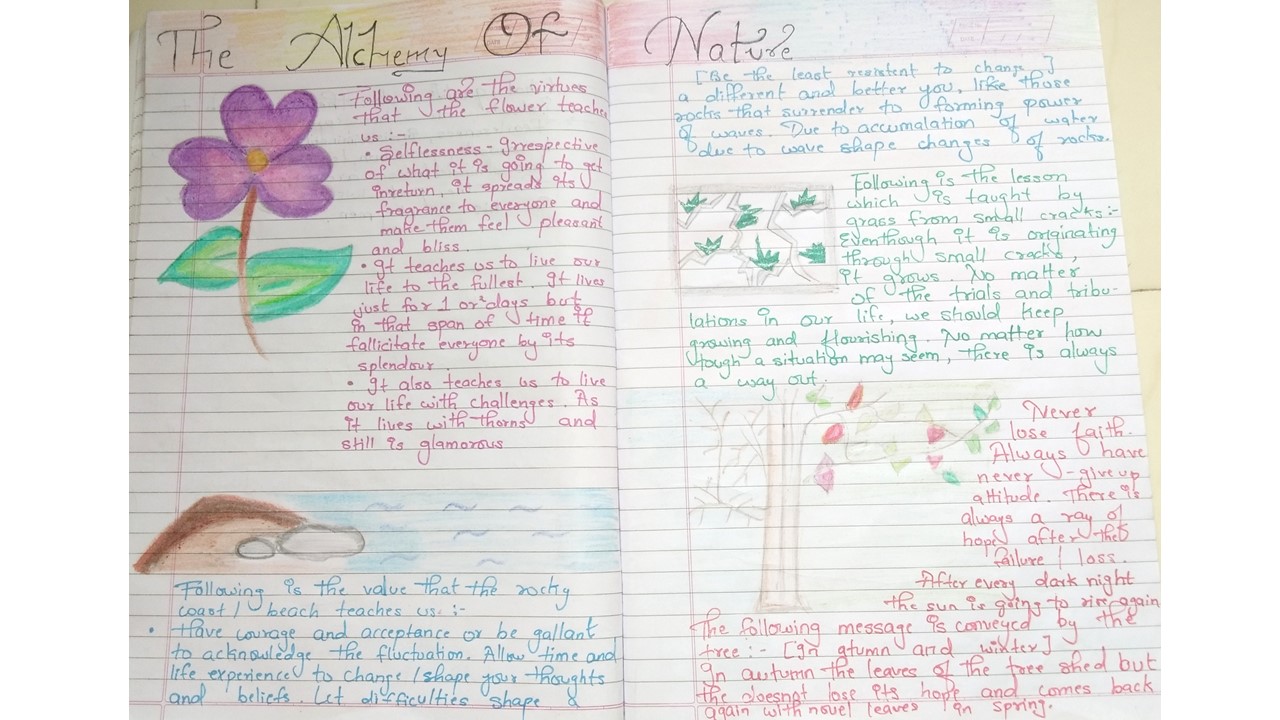 The Alchemy Of Nature
Following are the virtues
that the flower teaches
us :-
• Selflessness - Irrespective
of what it is going to get
inreturn, it spreads its
fragrance to everyone and
make them feel pleasant
and bliss.
• It teaches us to live our
life to the fullest. It lives
just for 1 or 2 days but
in that span of time it
fallicitate everyone by its
splendour.
• It also teaches us to live
our life with challenges. As
it lives with thorns and
still is glamorous
Following is the value that the rocky
coast / beach teaches us :-
• Have courage and acceptance or be gallant
to acknowledge the fluctuation. Allow time and
life experience to change / shape your thoughts
and beliefs. Let difficulties shape a
[Be the least resistent to change]
a different and better you, like those
rocks that surrender to forming power
of waves. Due to accumalation of water
due to wave shape changes of rocks.
Following is the lesson
which is taught by
grass from small cracks :-
Eventhough it is originating
through small cracks,
it grows. No matter
of the trials and tribu-
lations in our life, we should keep
growing and flourishing. No matter how
tough a situation may seem, there is always
a way out.
Never
lose faith.
Always have
never - give up
attitude. There is
always a ray of
hope after the
failure / loss.
After every dark night
the sun is going to rise again
The following message is conveyed by the
tree :- [In atumn and winter]
In autumn the leaves of the tree shed but
the doesnot lose its hope and comes back
again with novel leaves in spring.